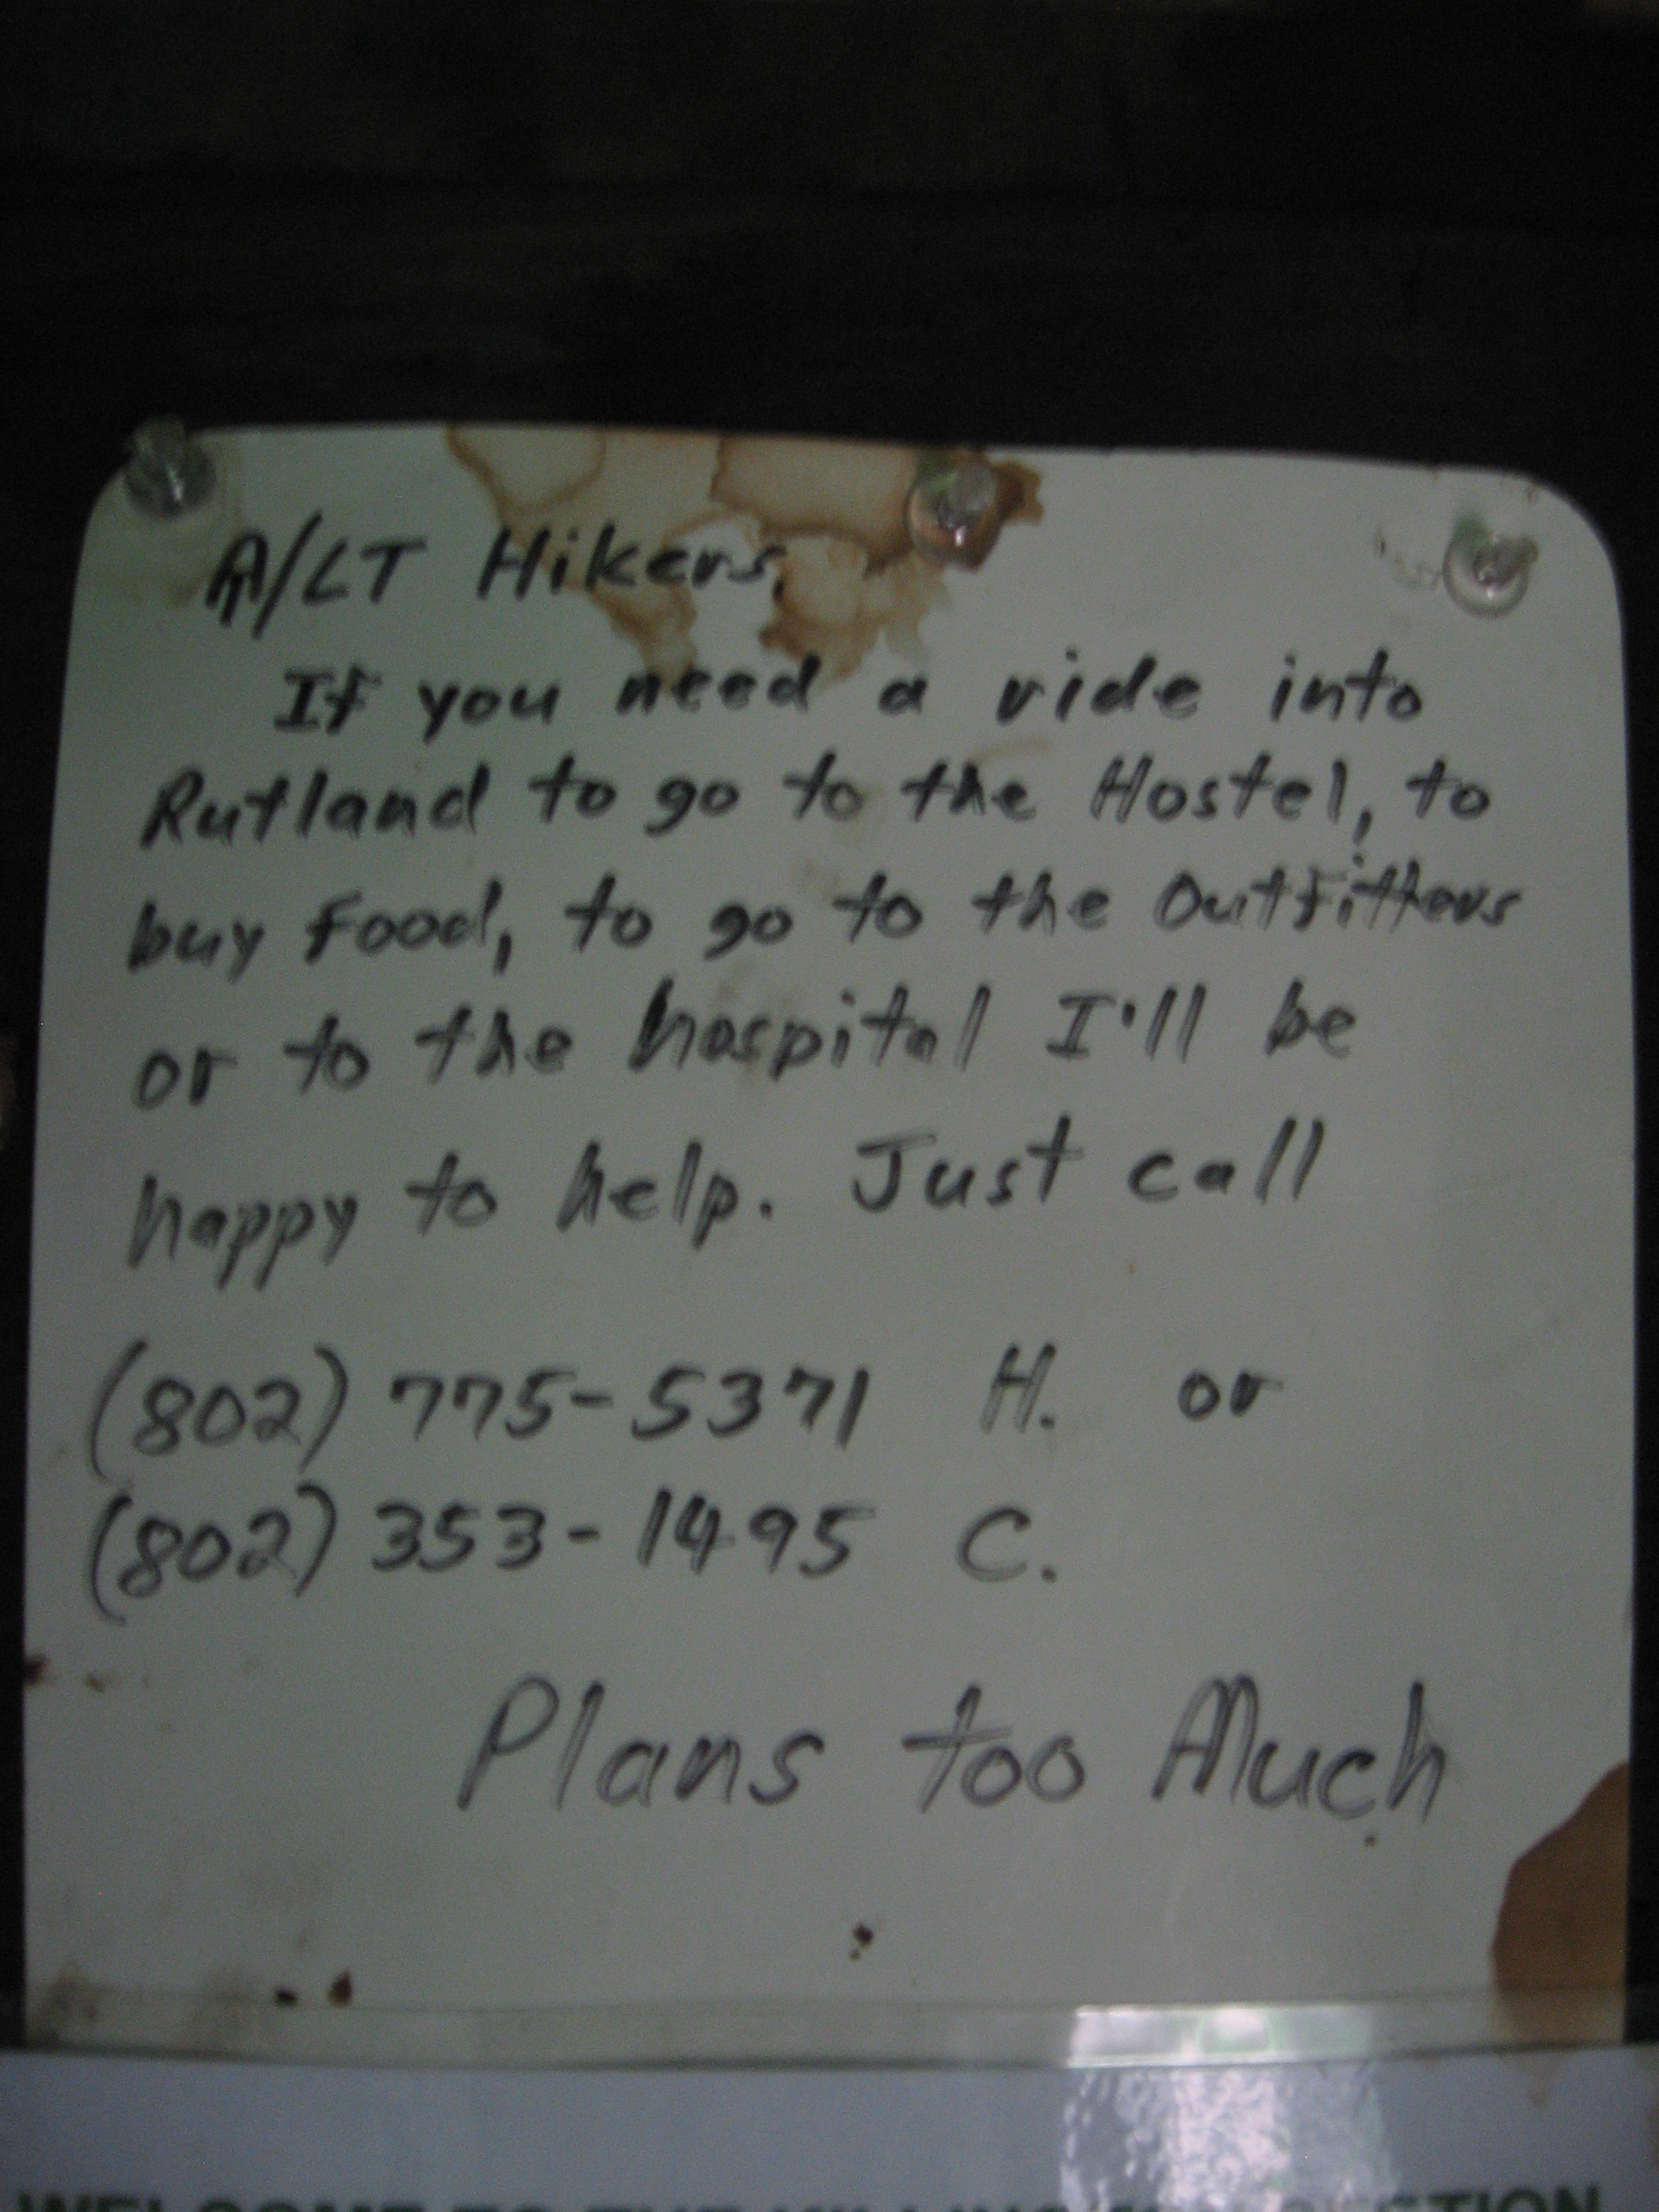 A/LT Hikers,
If you need a ride into
Rutland to go to the Hostel, to
buy food, to go to the Outfitters
or to the hospital I'll be
happy to help. Just call
(802) 775-5371 H. or
(802) 353-1495 C.
Plans too Much
WELCOME TO THE